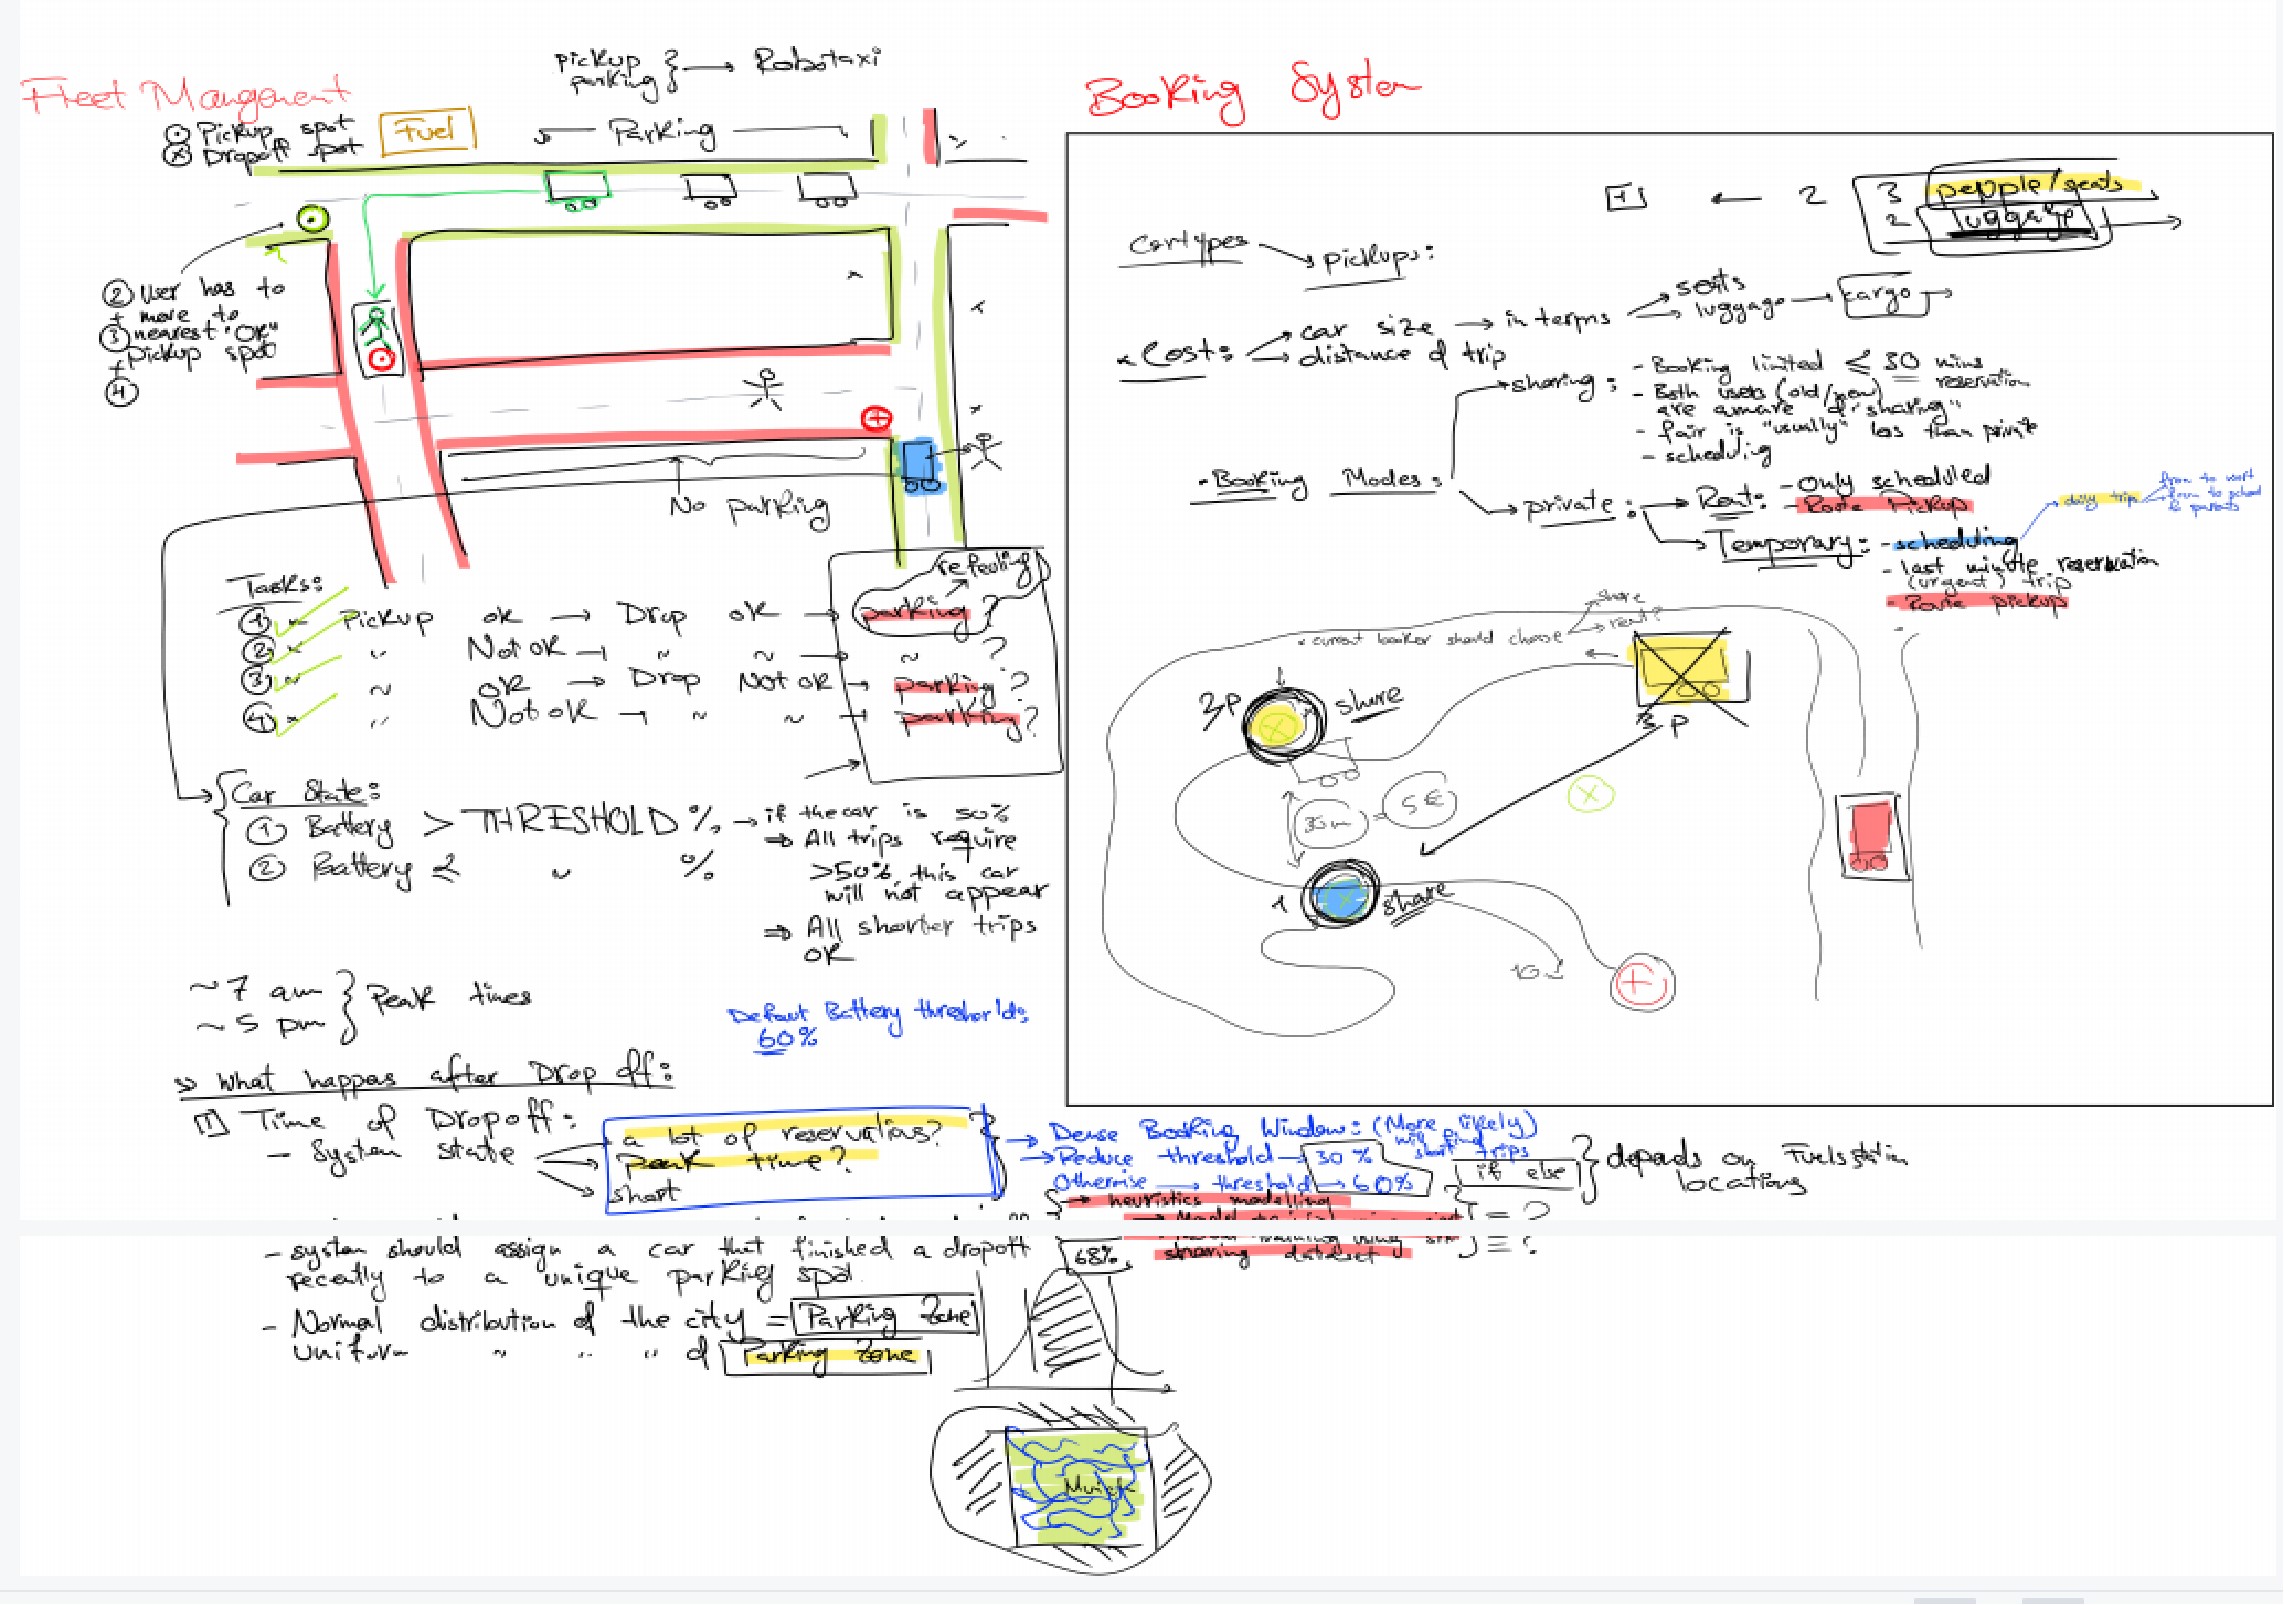 pickup
parking } → Robotaxi
Fleet Mangement
Pickup spot
Dropoff spot
Fuel
Parking
② User has to
+ move to
③ nearest "OK"
+ pickup spot
④
No parking
Tasks:
① Pickup ok → Drop ok → parking ?
refueling
② " Not ok → ~ ~ → ~ ?
③ ~ ok → Drop Not ok → parking ?
④ " Not ok → ~ ~ → parking ?
Car State:
① Battery > THRESHOLD %
② Battery ≤ " %
→ if the car is 50%
⇒ All trips require
>50% this car
will not appear
⇒ All shorter trips
OK
~7 am
~5 pm } Peak times
Defaut Battery threshold:
60%
What happens after Drop off:
1 Time of Dropoff:
- System state
a lot of reservations?
peak time?
short
→ Dense Booking Window: (More likely)
will find
short trips
→ Reduce threshold → 30 %
Otherwise → threshold → 60%
if else
depends on Fuel station
locations
→ heuristics modelling
sharing dataset
= ?
≡ ?
- system should assign a car that finished a dropoff
recently to a unique parking spot
- Normal distribution of the city = Parking Zone
Uniform " " " of Parking Zone
68%
Munich
Booking System
2
3 people/seats
2 luggage
Cartypes
pickups:
Cost:
car size → in terms
distance of trip
seats
luggage → cargo
- Booking Modes:
sharing:
- Booking limited ≤ 30 mins
reservation
- Both users (old/new)
are aware of "sharing"
- fair is "usually" less than private
- scheduling
private:
Rent: - Only scheduled
- Route Pickup
Temporary: - scheduling
daily trip
from to work
from to school
- last minute reservation
(urgent) trip
- Route pickup
• current booker should choose
share
rent?
3P
share
3 P
35m
5€
1
share